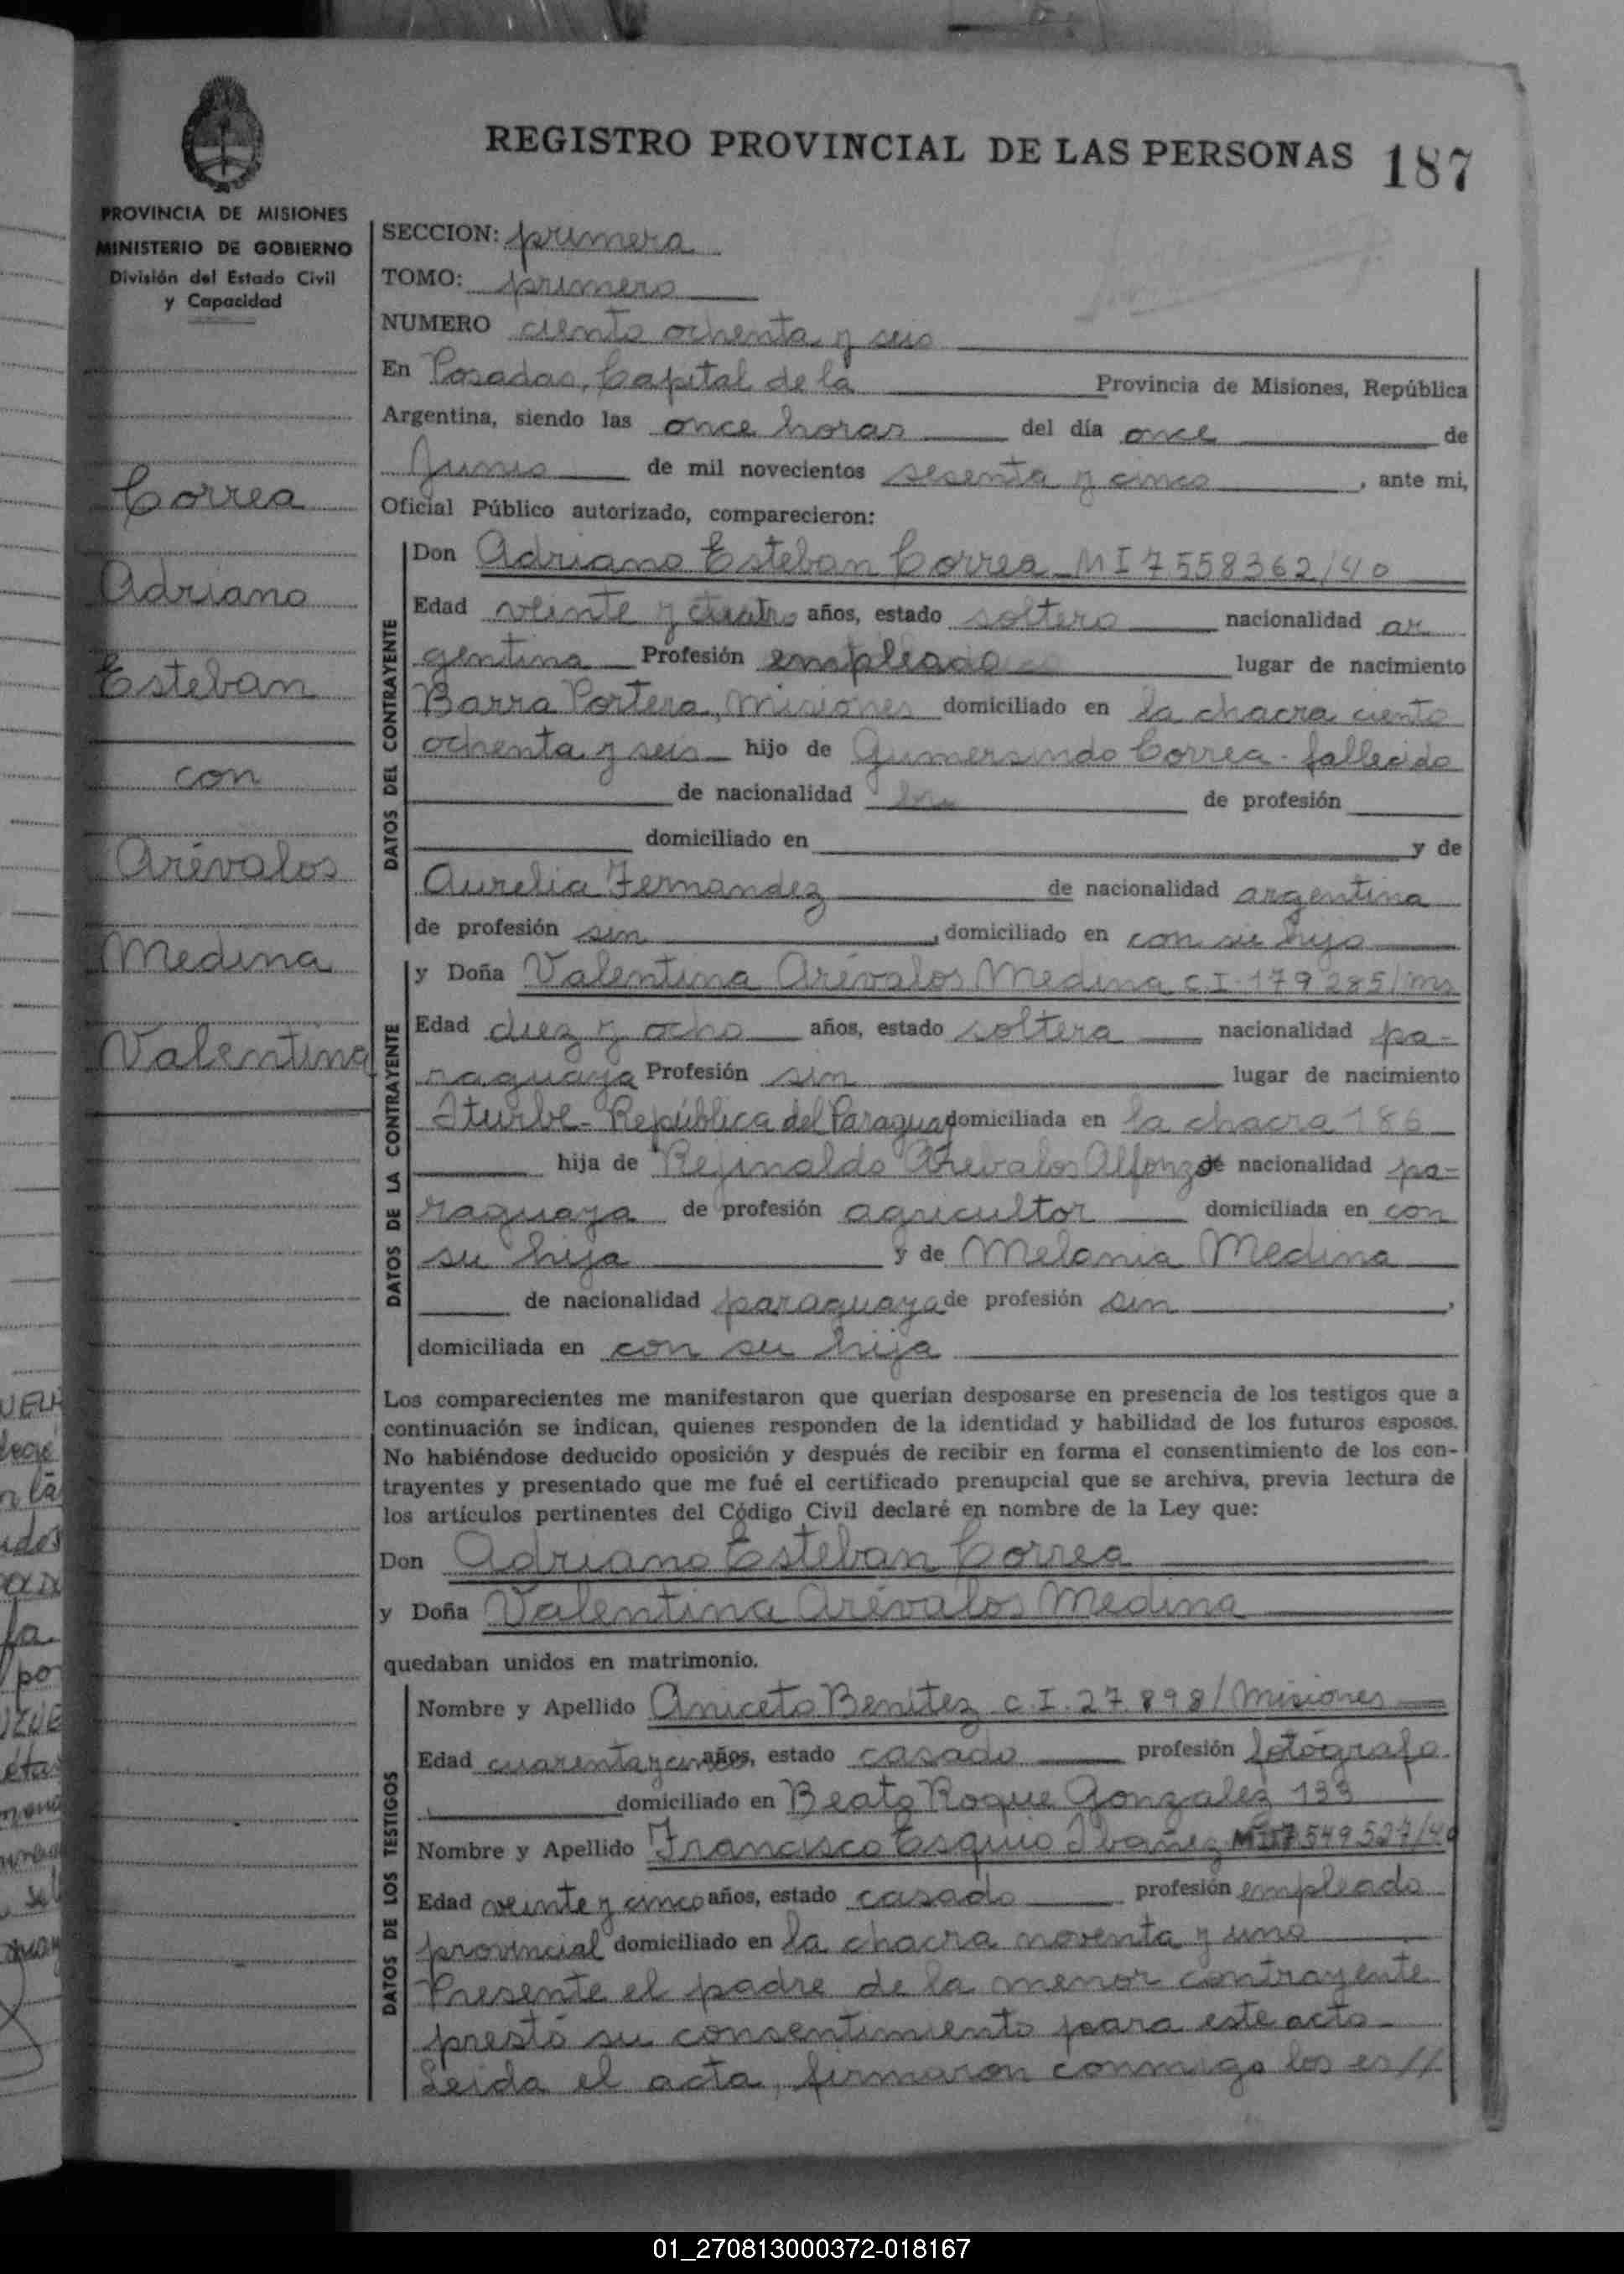 REGISTRO PROVINCIAL DE LAS PERSONAS 187
PROVINCIA DE MISIONES
MINISTERIO DE GOBIERNO
División del Estado Civil
y Capacidad
Correa
Adriano
Esteban
con
Arévalos
Medina
Valentina
SECCION: primera
TOMO: primero
NUMERO ciento ochenta y seis
En Posadas, Capital de la Provincia de Misiones, República
Argentina, siendo las once horas del día once de
Junio de mil novecientos sesenta y cinco, ante mi,
Oficial Público autorizado, comparecieron:
DATOS DEL CONTRAYENTE
Don Adriano Esteban Correa MI 7558362/40
Edad veinte y cuatro años, estado soltero nacionalidad ar
gentina Profesión empleado lugar de nacimiento
Barra Portera, Misiones domiciliado en la chacra ciento
ochenta y seis hijo de Gumersindo Correa - fallecido
de nacionalidad de profesión
domiciliado en y de
Aurelia Fernandez de nacionalidad argentina
de profesión sin, domiciliado en con su hijo
DATOS DE LA CONTRAYENTE
y Doña Valentina Arévalos Medina C.I. 179285/Ms
Edad diez y ocho años, estado soltera nacionalidad pa-
raguaya Profesión sin lugar de nacimiento
Iturbe - República del Paraguay domiciliada en la chacra 186
hija de Rejinaldo Arevalos Alfonzo de nacionalidad pa-
raguaya de profesión agricultor domiciliada en con
su hija y de Melania Medina
de nacionalidad paraguaya de profesión sin,
domiciliada en con su hija
Los comparecientes me manifestaron que querían desposarse en presencia de los testigos que a
continuación se indican, quienes responden de la identidad y habilidad de los futuros esposos.
No habiéndose deducido oposición y después de recibir en forma el consentimiento de los con-
trayentes y presentado que me fué el certificado prenupcial que se archiva, previa lectura de
los artículos pertinentes del Código Civil declaré en nombre de la Ley que:
Don Adriano Esteban Correa
y Doña Valentina Arévalos Medina
quedaban unidos en matrimonio.
DATOS DE LOS TESTIGOS
Nombre y Apellido Aniceto Benitez C.I. 27.898/Misiones
Edad cuarenta y cinco años, estado casado profesión fotógrafo
domiciliado en Beato Roque Gonzalez 133
Nombre y Apellido Francisco Esquio Ibañez MI 7549527/40
Edad veinte y cinco años, estado casado profesión empleado
provincial domiciliado en la chacra noventa y uno
Presente el padre de la menor contrayente
prestó su consentimiento para este acto
Leida el acta, firmaron conmigo los es//
01_270813000372-018167